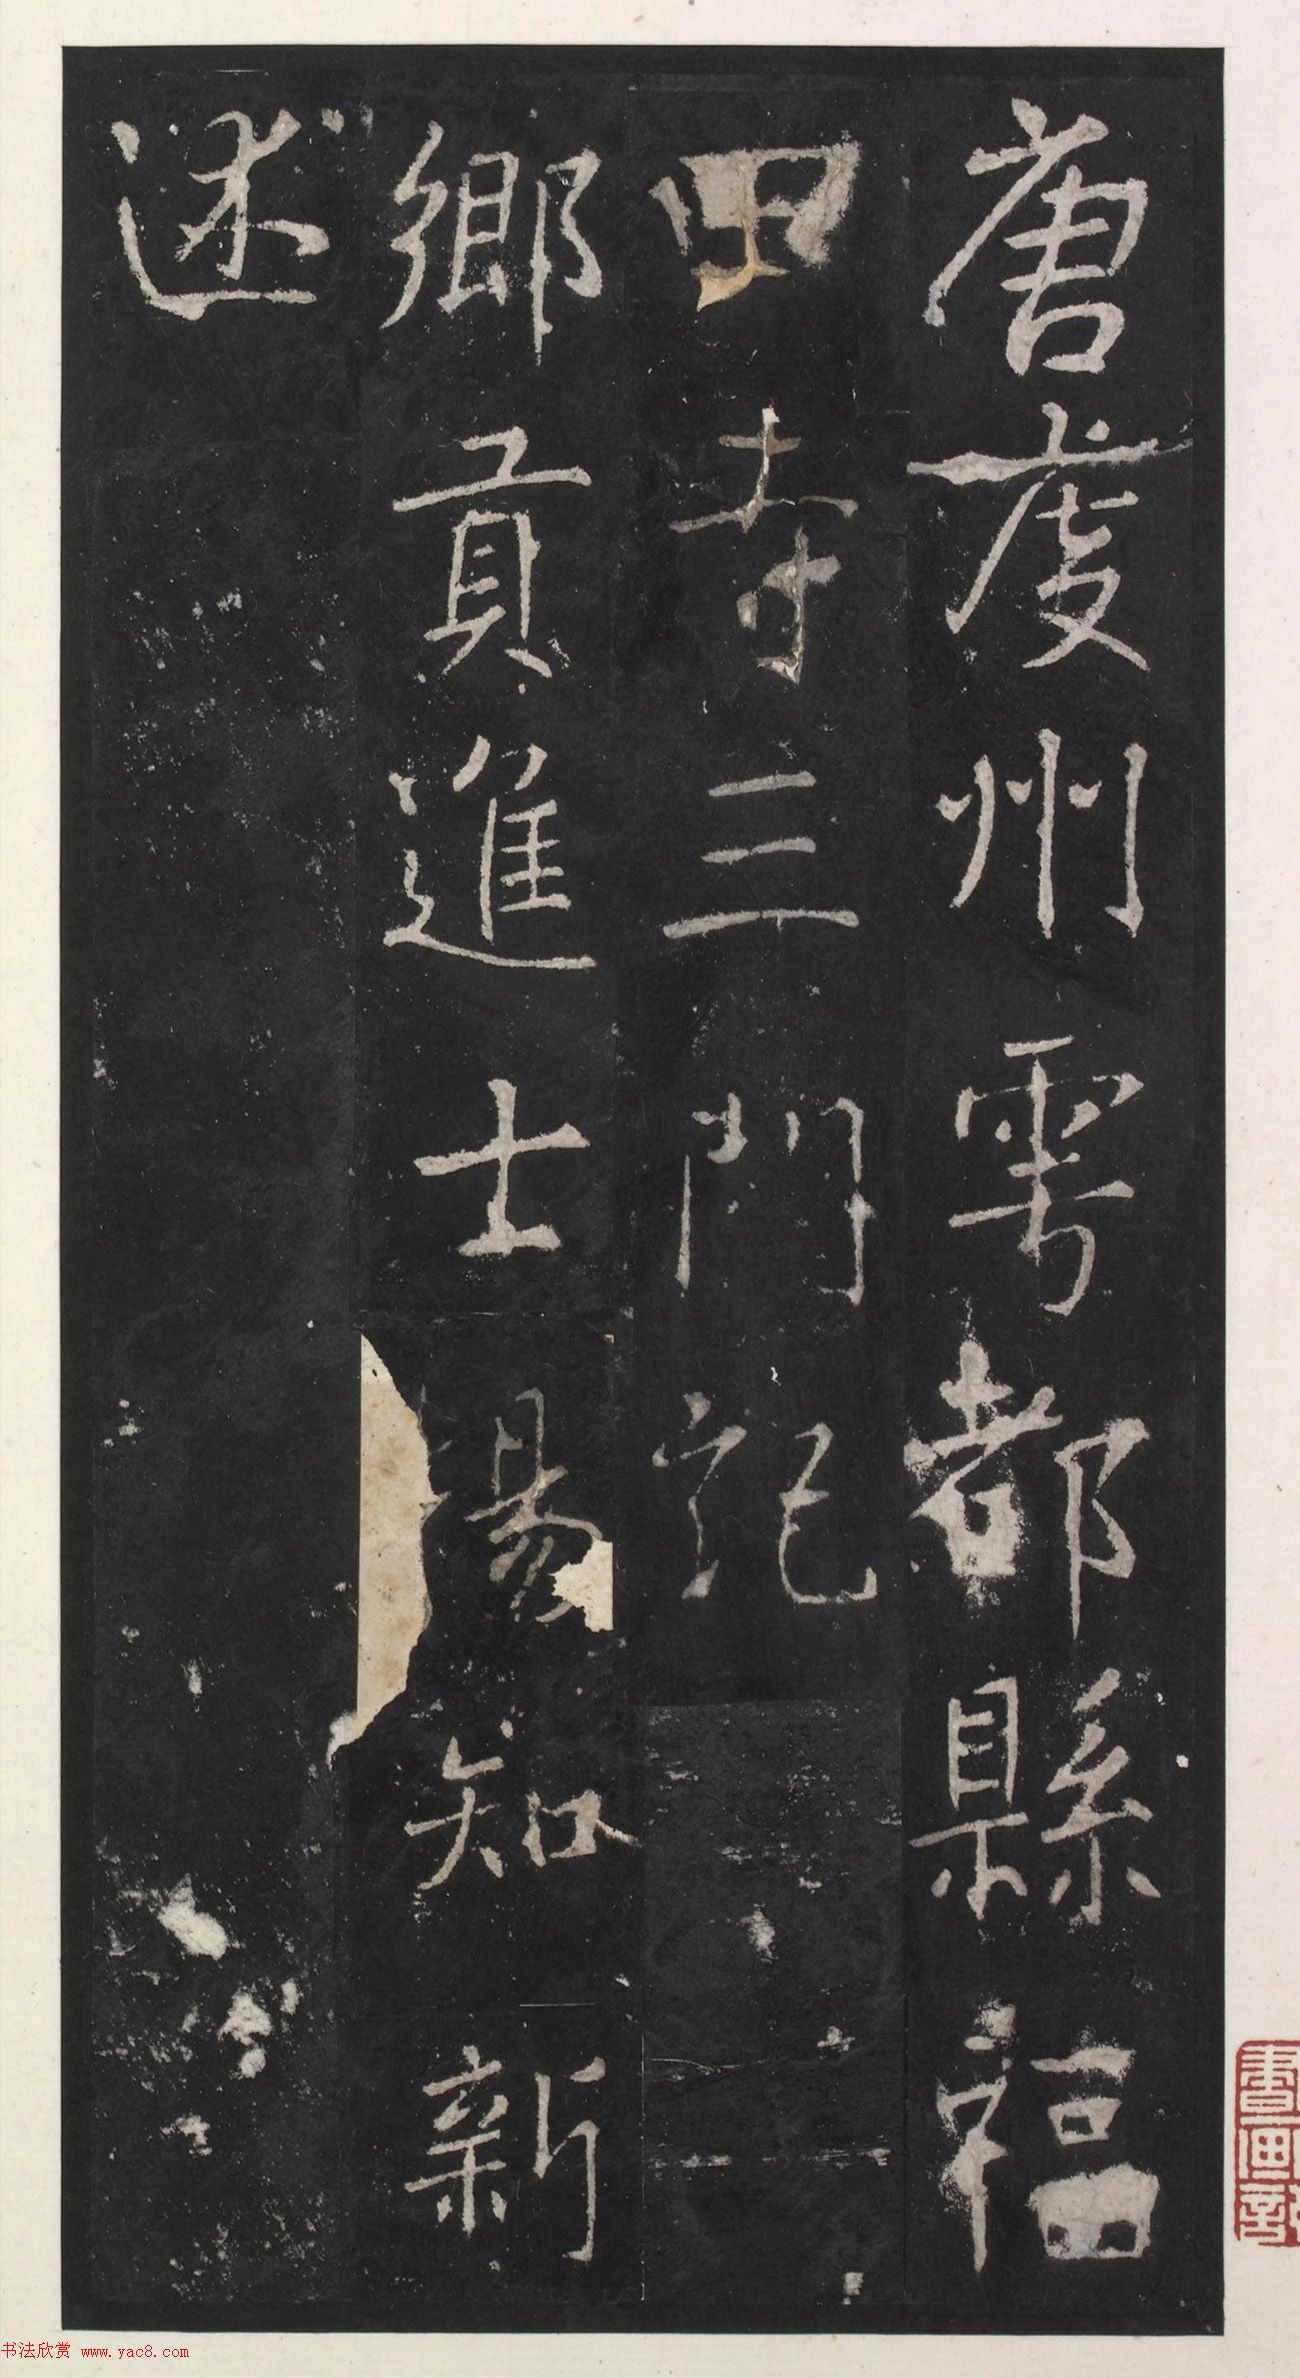 唐虔州雩都縣福
田寺三門記
鄉貢進士楊知新
述
書畫
书法欣赏 www.yac8.com